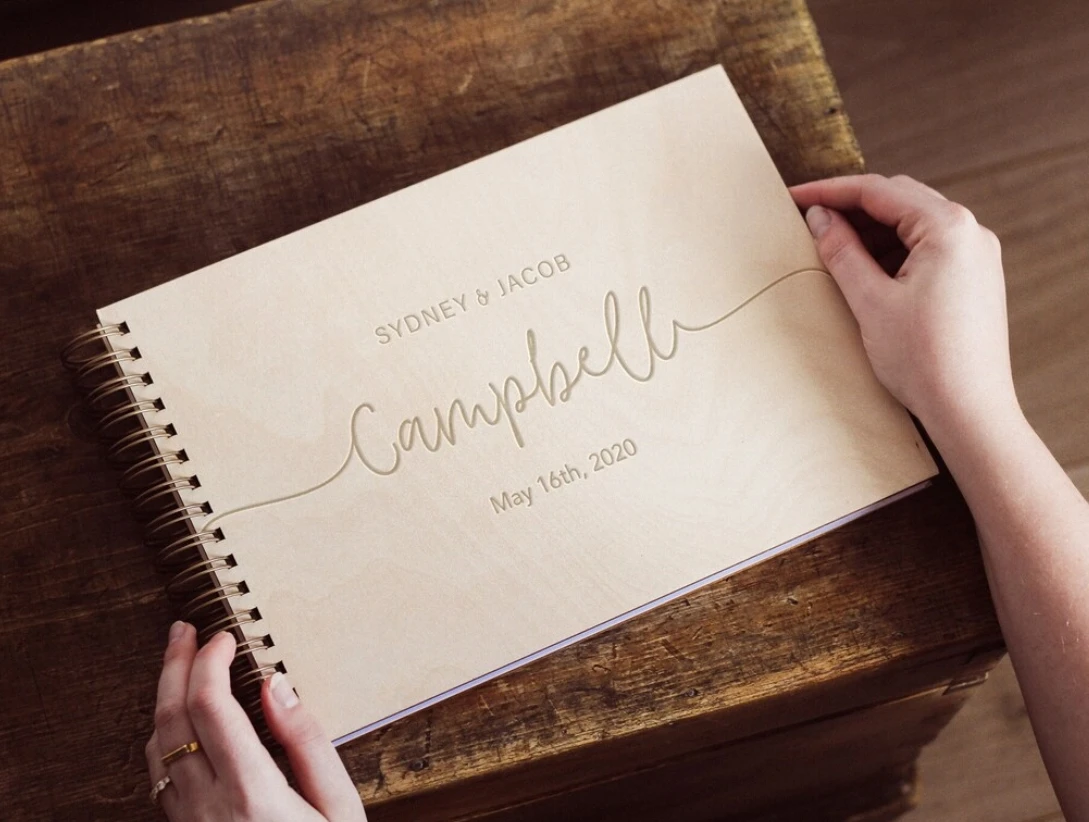 SYDNEY & JACOB
Campbell
May 16th, 2020